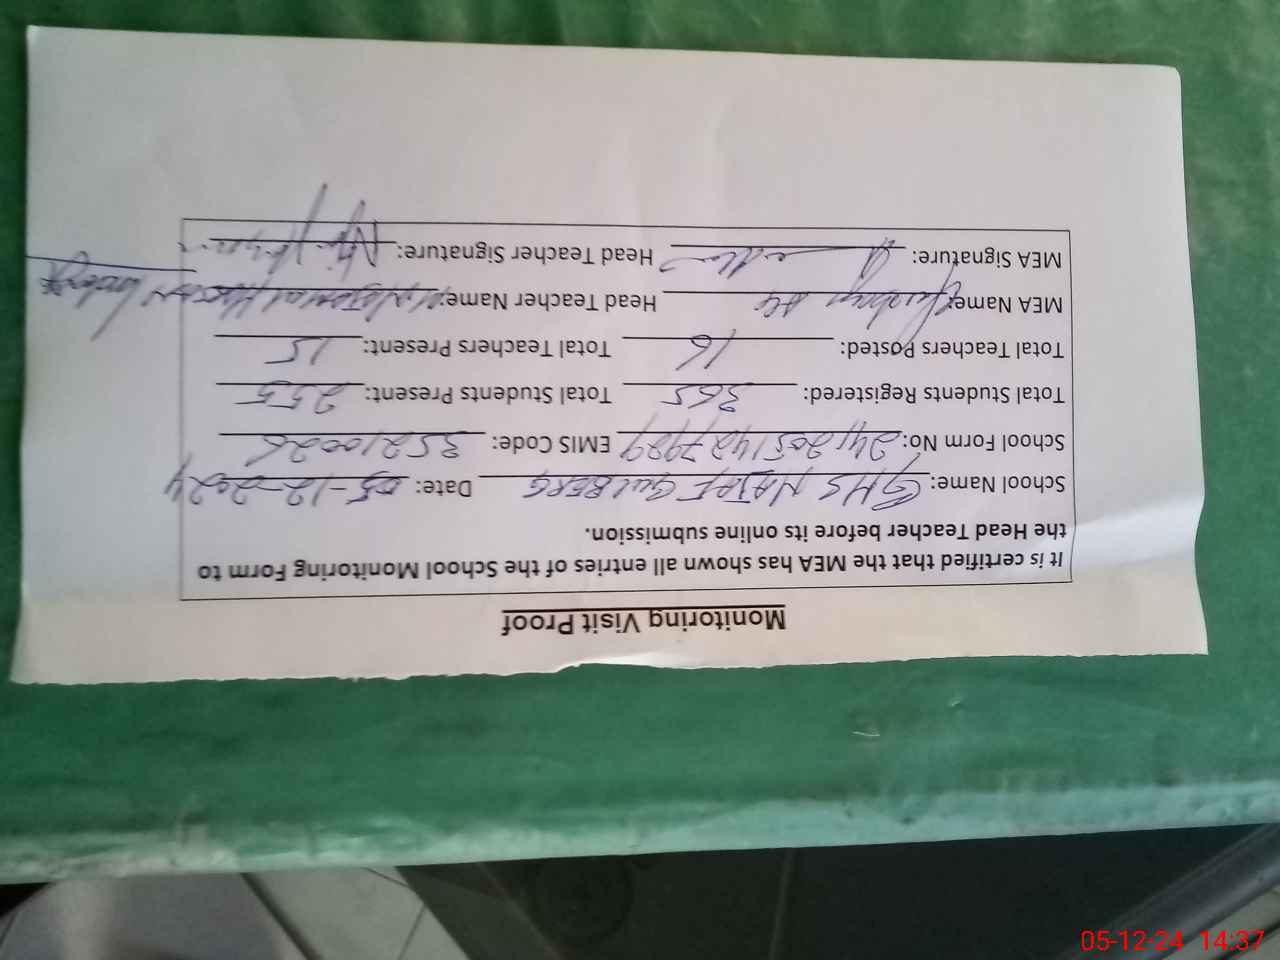 Monitoring Visit Proof
It is certified that the MEA has shown all entries of the School Monitoring Form to
the Head Teacher before its online submission.
School Name: GHS NAJAF GULBERG Date: 05-12-2024
School Form No: EMIS Code:
Total Students Registered: 365 Total Students Present: 255
Total Teachers Posted: 16 Total Teachers Present: 15
MEA Name: Head Teacher Name:
MEA Signature: Head Teacher Signature:
05-12-24 14:37